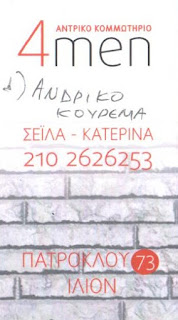 ΑΝΤΡΙΚΟ ΚΟΜΜΩΤΗΡΙΟ
4men
d) ΑΝΔΡΙΚΟ
ΚΟΥΡΕΜΑ
ΣΕΪΛΑ - ΚΑΤΕΡΙΝΑ
210 2626253
ΠΑΤΡΟΚΛΟΥ 73
ΙΛΙΟΝ